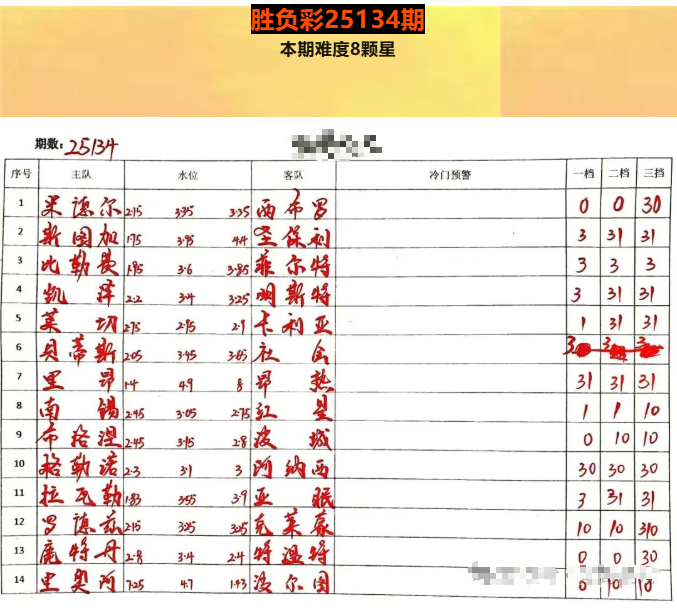 胜负彩25134期
本期难度8颗星
期数: 25134
序号 主队 水位 客队 冷门预警 一档 二档 三挡
1 米德尔 2.15 3.35 3.35 西布罗 0 0 30
2 斯图加 1.75 3.95 4.4 圣保利 3 31 31
3 比勒费 1.95 3.6 3.85 菲尔特 3 3 3
4 凯泽 2.2 3.4 3.25 明斯特 3 31 31
5 莱切 2.75 2.95 2.9 卡利亚 1 31 31
6 贝蒂斯 2.05 3.45 3.65 社会 3 3 3
7 里昂 1.4 4.9 8 昂热 31 31 31
8 南锡 2.45 3.05 2.75 红星 1 1 10
9 布格涅 2.45 3.45 2.8 波城 0 10 10
10 格勒诺 2.3 3.1 3 阿纳西 30 30 30
11 拉瓦勒 1.83 3.55 3.9 亚眠 3 31 31
12 罗德兹 2.15 3.25 3.25 克莱蒙 10 10 310
13 鹿特丹 2.8 3.4 2.4 特温特 0 0 30
14 里奥阿 7.25 4.7 1.43 波尔图 0 10 10